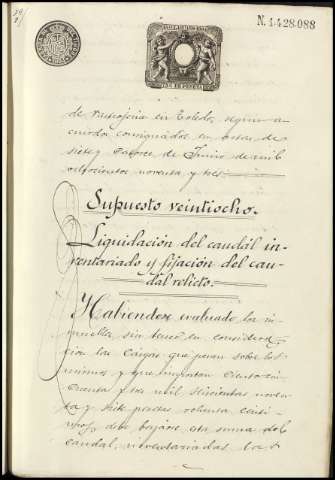 N. 1.428.088
de Vastojeria en Toledo, segun a-
cuerdos consignados en actas de
siete y catorce de Junio de mil
ochocientos noventa y tres.
Supuesto veintiocho.
Liquidación del caudal in-
ventariado y fijación del cau-
dal relicto.
Habiendose evaluado los in-
muebles, sin tener en considera-
cion las cargas que pesan sobre los
mismos y que importan ciento cin-
cuenta y tres mil seiscientas noven-
ta y siete pesetas ochenta centi-
mos, debe bajarse esta suma del
caudal, inventariadas las